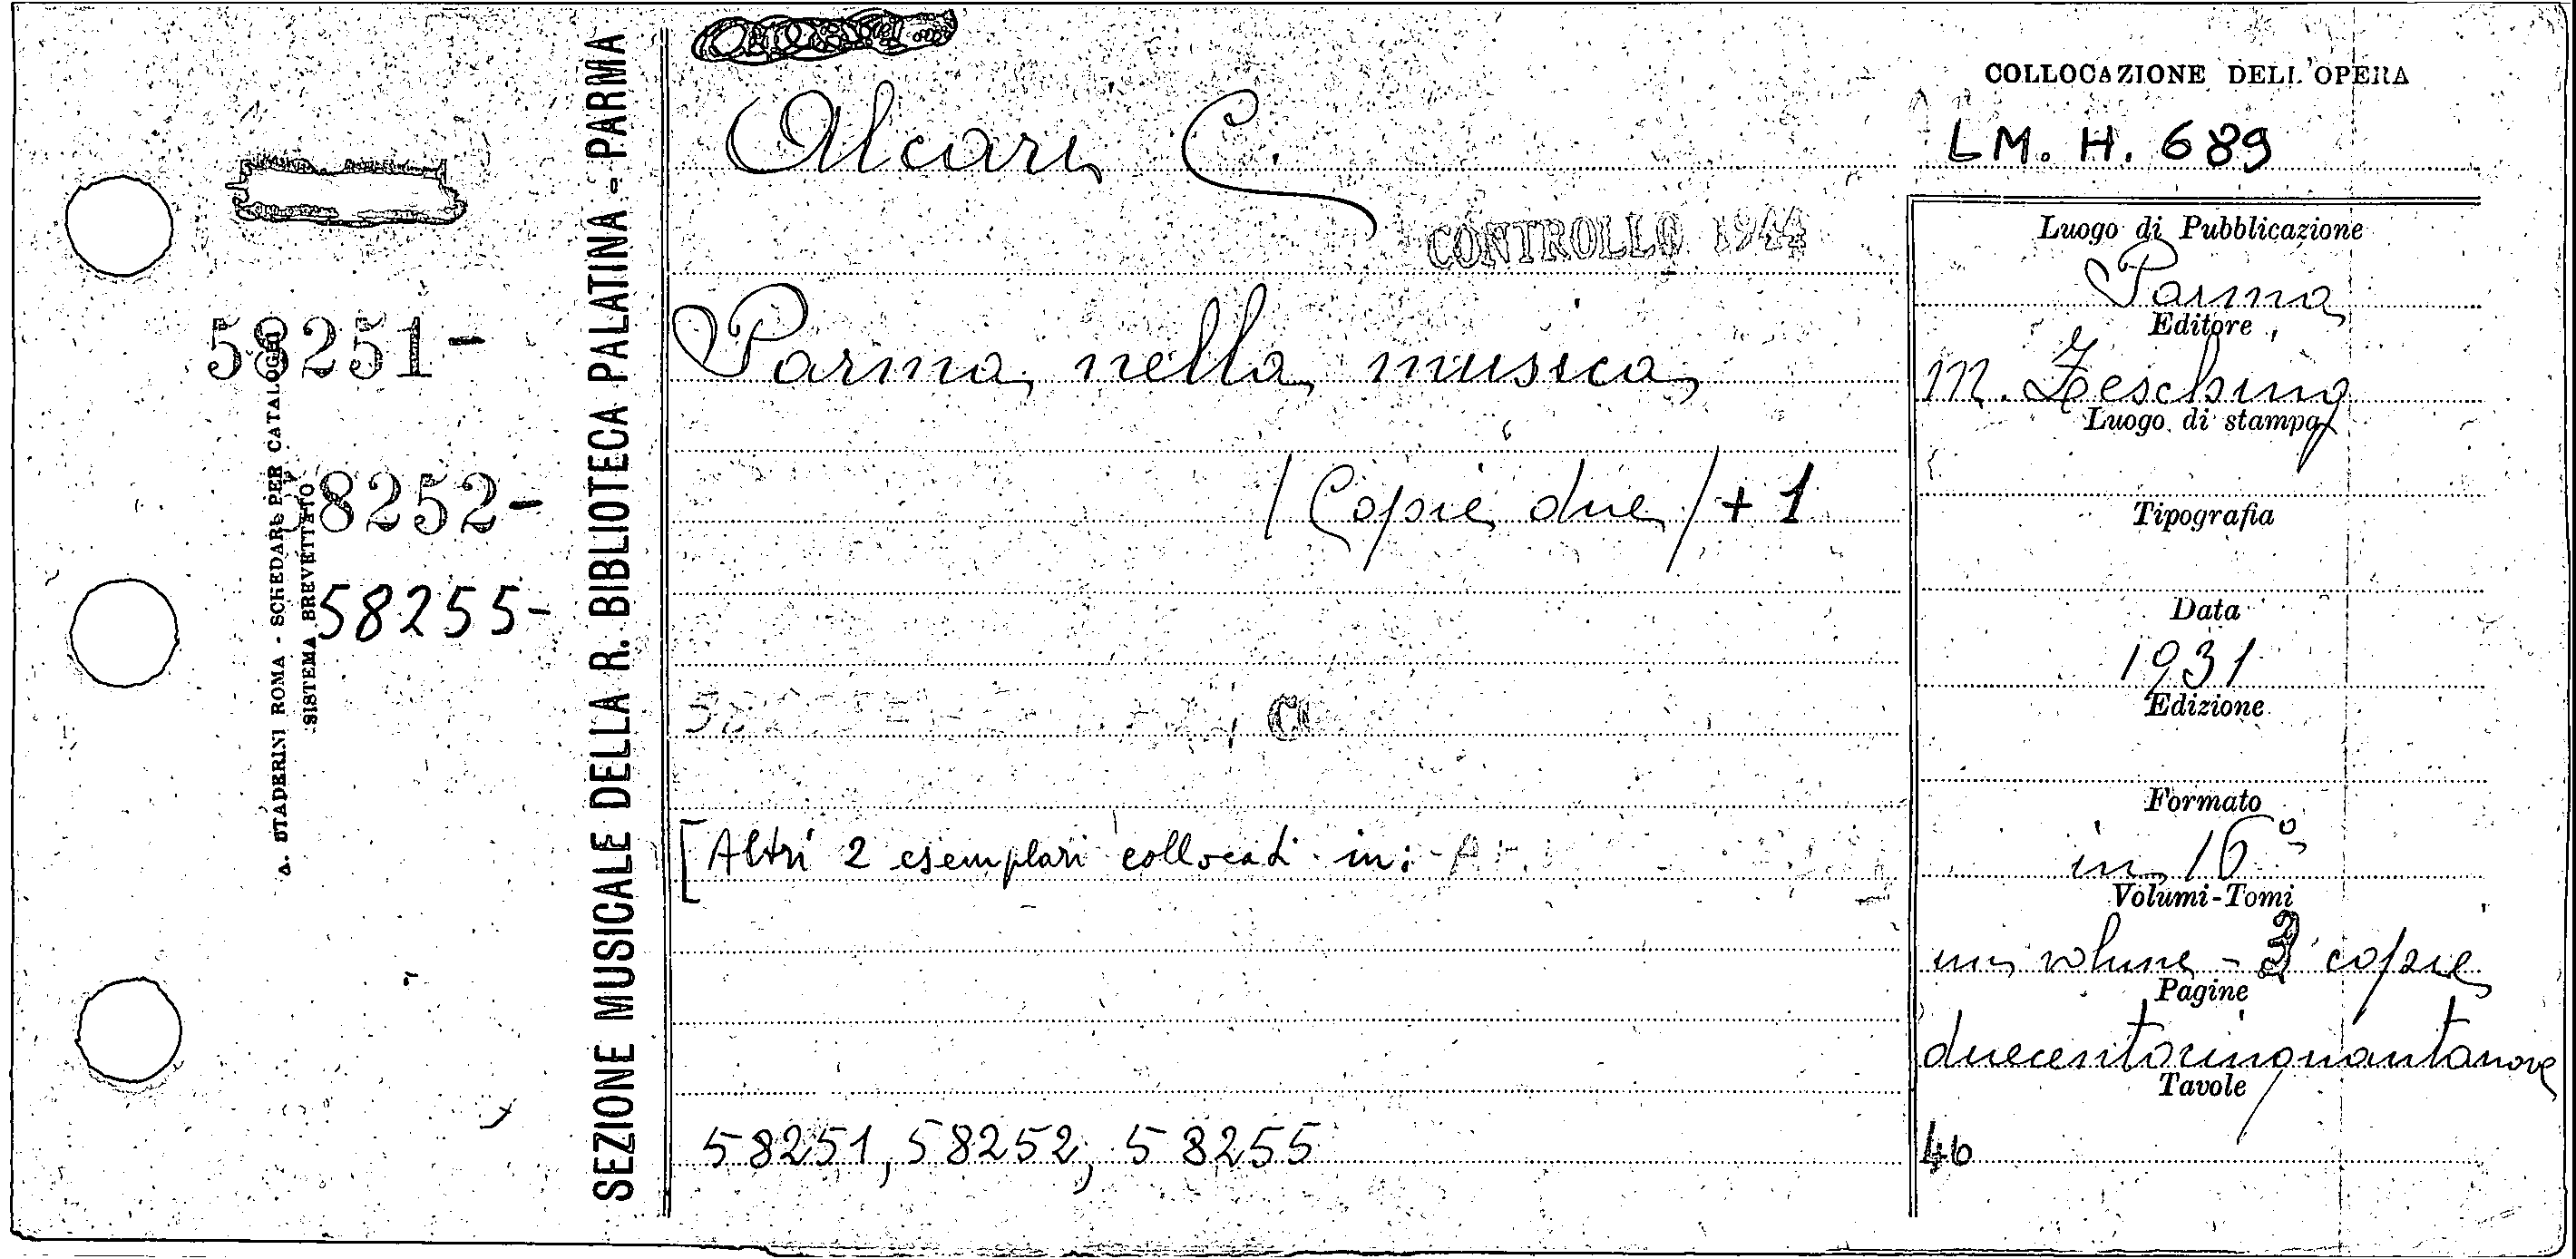 58251-
58252-
58255-
A. STADERINI ROMA - SCHEDARI PER CATALOGHI
SISTEMA BREVETTATO
SEZIONE MUSICALE DELLA R. BIBLIOTECA PALATINA - PARMA
Alcari C.
CONTROLLO 1944
Parma nella musica
/ Copie due / + 1
[Altri 2 esemplari collocati in:
58251, 58252, 58255
COLLOCAZIONE DELL'OPERA
LM. H. 689
Luogo di Pubblicazione
Parma
Editore
M. Zeschina
Luogo di stampa
Tipografia
Data
1931
Edizione
Formato
in 16°
Volumi-Tomi
un volume - 3 copie
Pagine
duecentocinquantanove
Tavole
46